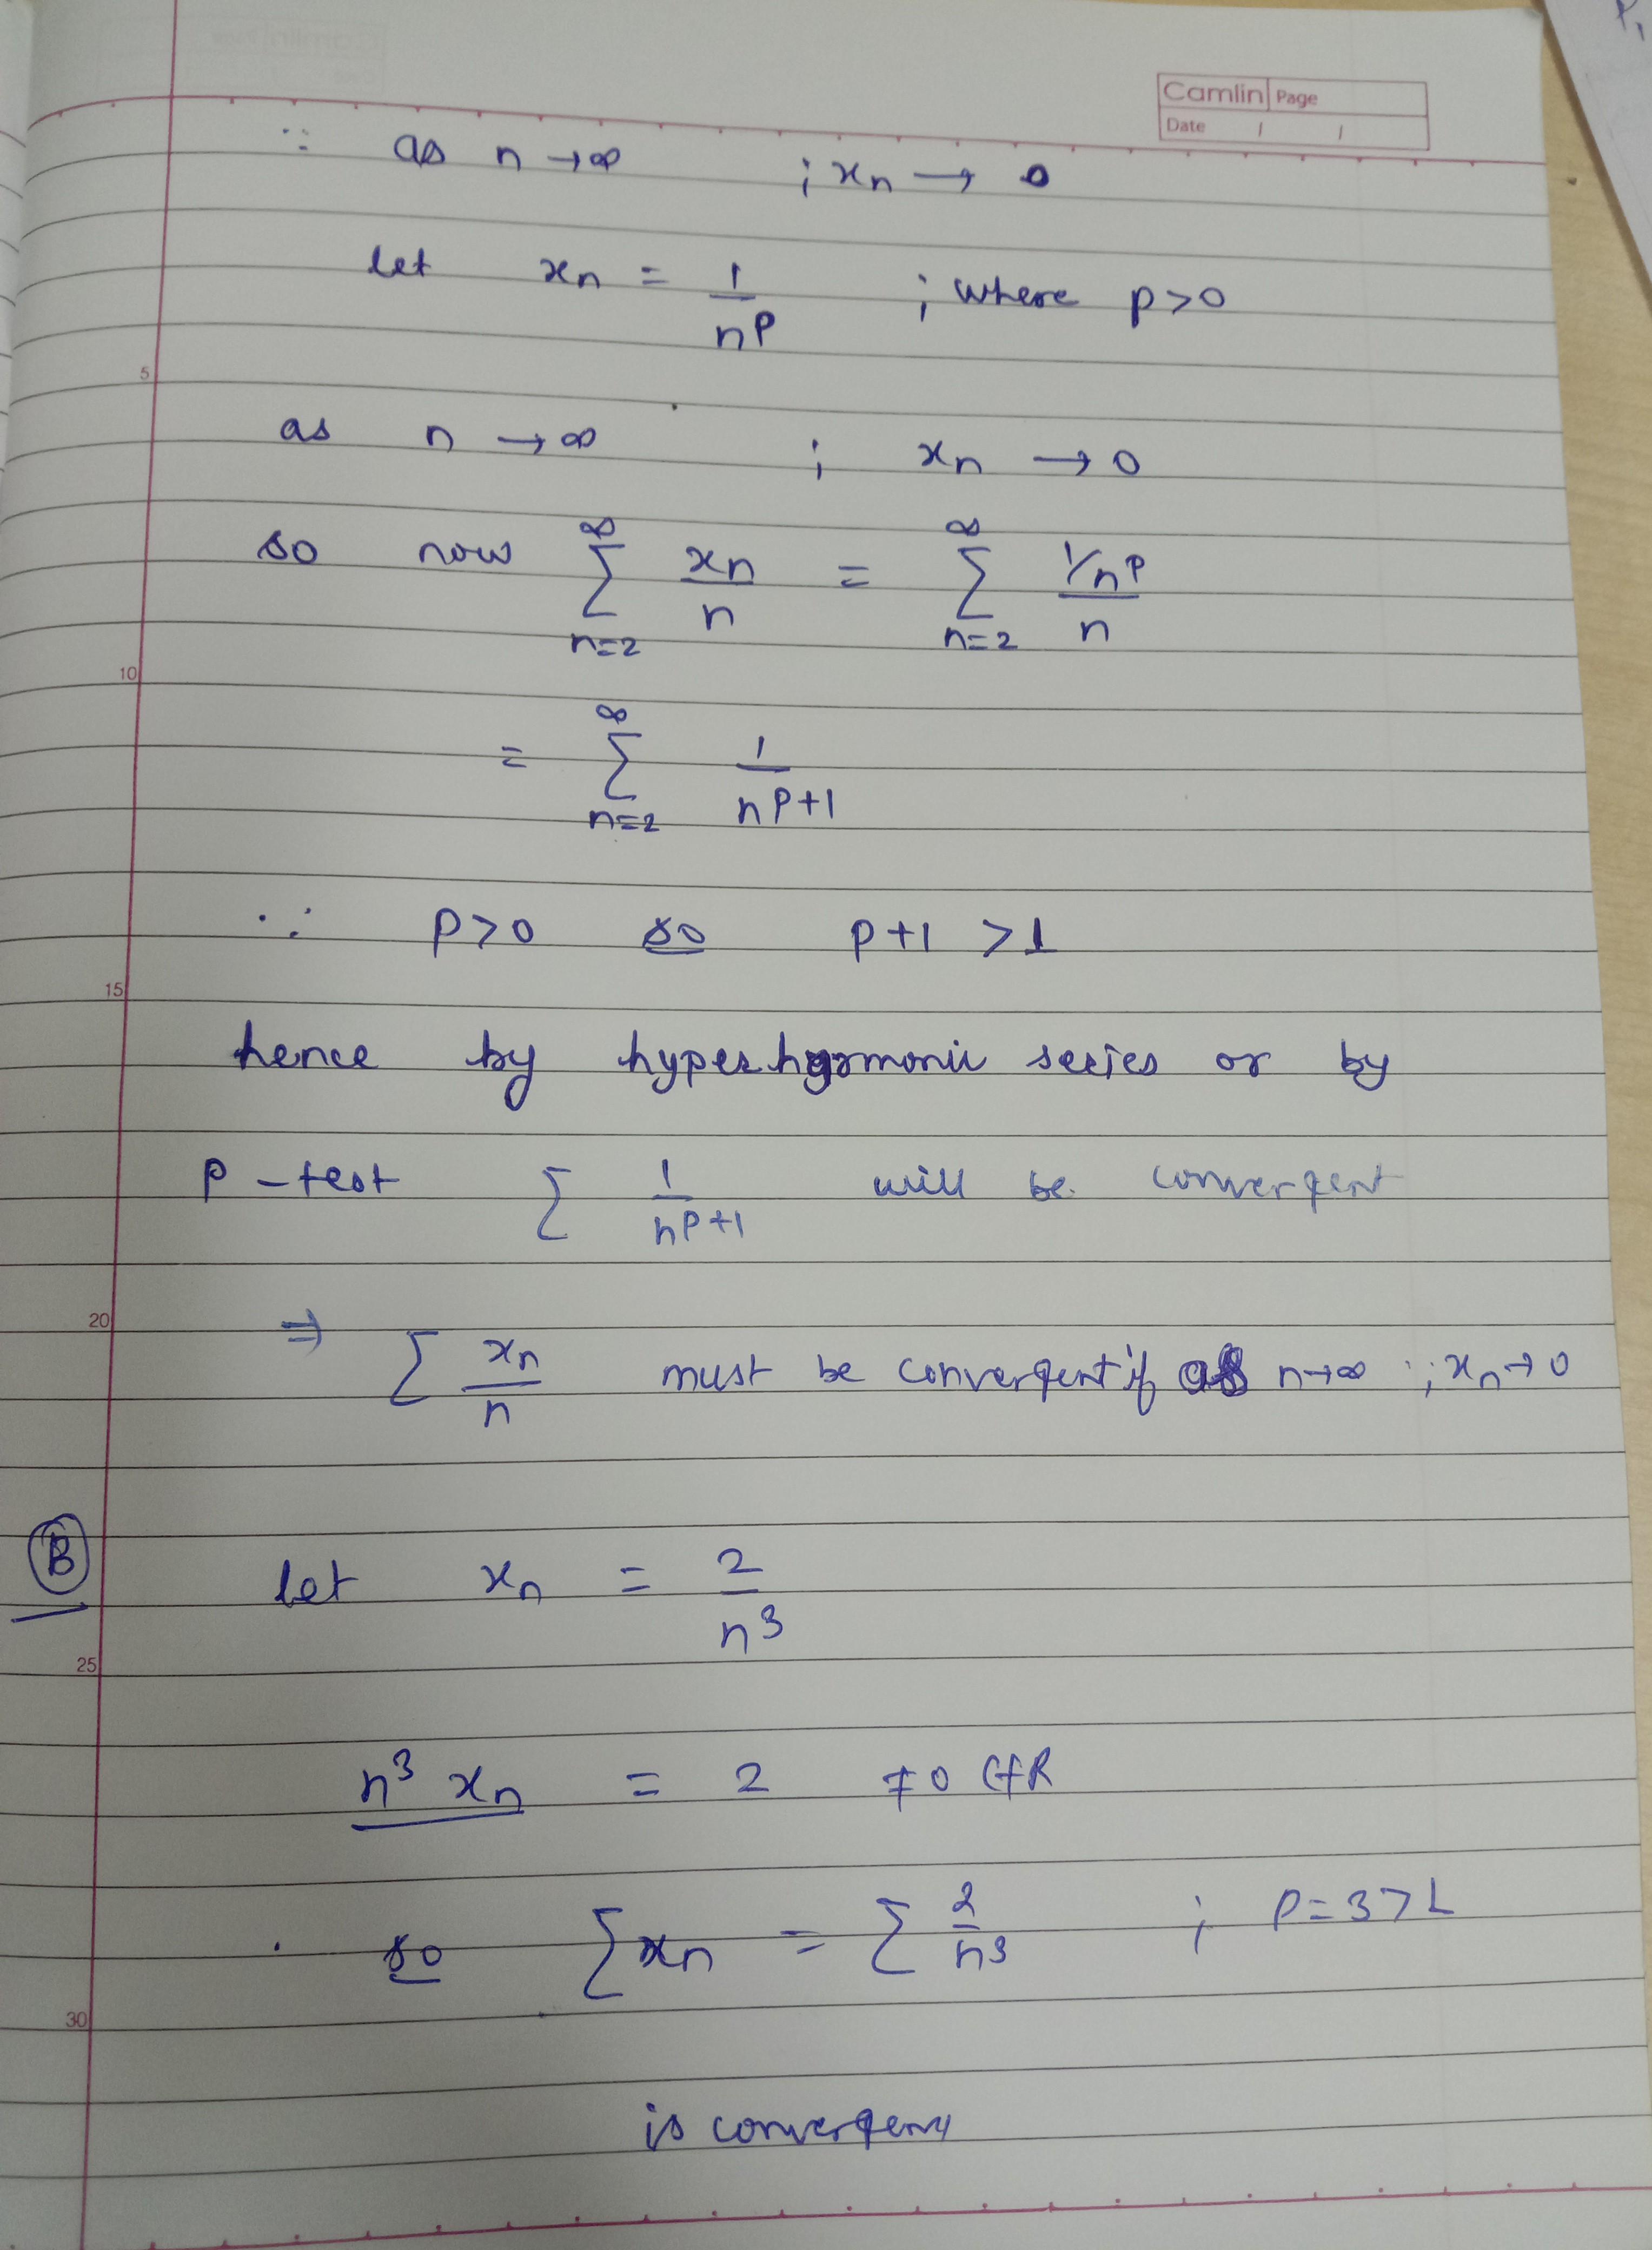 Camlin Page
Date / /
∵ as n → ∞ ; xn → 0
let xn = 1/n^p ; where p > 0
5
as n → ∞ ; xn → 0
so now ∞∑n=2 xn/n = ∞∑n=2 (1/n^p)/n
10
= ∞∑n=2 1/n^p+1
∵ p > 0 so p+1 > 1
15
hence by hyperharmonic series or by
P-test ∑ 1/n^p+1 will be convergent
20
⇒ ∑ xn/n must be convergent if as n→∞ ; xn→0
B
let xn = 2/n^3
25
n^3 xn = 2 ≠ 0 ∈ R
so ∑ xn = ∑ 2/n^3 ; P = 3 > 1
30
is convergent